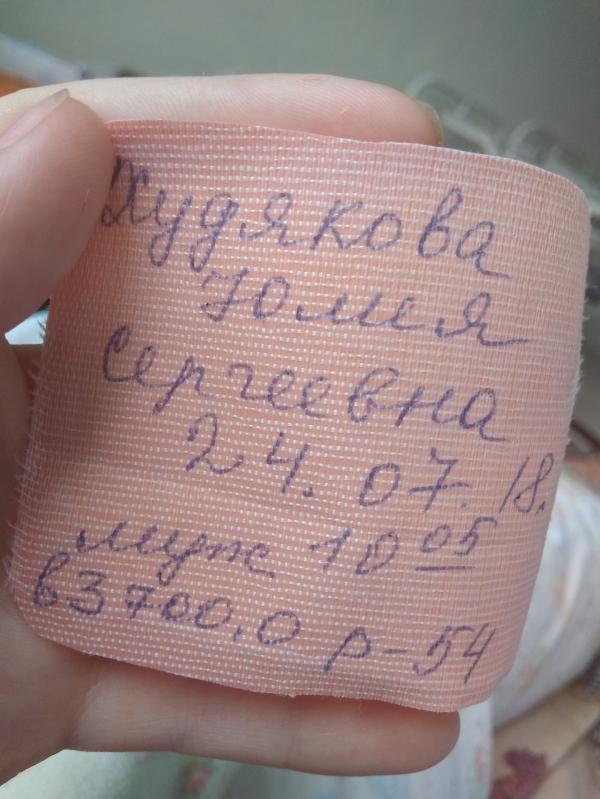 Худякова
Юлия
Сергеевна
24.07.18.
муж 10 05
в 3700,0 р-54